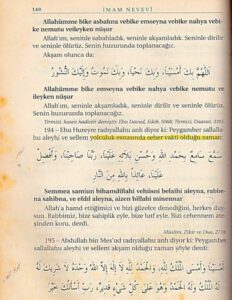 140 İMAM NEVEVİ
Allahümme bike asbahna vebike emseyna vebike nahya vebi-
ke nemutu veileyken nüşur
Allah'ım, seninle sabahladık, seninle akşamladık. Seninle dirilir
ve seninle ölürüz. Senin huzurunda toplanacağız.
Akşam olunca da:
اَللّٰهُمَّ بِكَ اَمْسَيْنَا، وَبِكَ نَحْيَا، وَبِكَ نَمُوتُ وَاِلَيْكَ النُّشُورُ
Allahümme bike emseyna vebike nahya vebike nemutu ve
ileyken nüşur
Allah'ım, seninle akşamladık, seninle dirilir ve seninle ölürüz.
Senin huzurunda toplanacağız.
Tirmizi, hasen hadistir demiştir. Ebu Davud, Edeb, 5068; Tirmizi, Daavat, 3391.
194 – Ebu Hureyre radıyallahu anh diyor ki: Peygamber sallalla-
hu aleyhi ve sellem yolculuk esnasında seher vakti olduğu zaman:
سَمَّعَ سَامِعٌ بِحَمْدِ اللّٰهِ وَحُسْنِ بَلَائِهِ عَلَيْنَا، رَبَّنَا صَاحِبْنَا، وَأَفْضِلْ
عَلَيْنَا، عَائِذًا بِاللّٰهِ مِنَ النَّارِ
Semmea samiun bihamdillahi vehüsni belaihi aleyna, rabbe-
na sahibna, ve efdıl aleyna, aizen billahi minennar
Allah'a hamd ettiğimizi ve bizi gözelce denediğini, herkes duy-
sun. Rabbimiz, bize sahiplik eyle, bize lutf eyle. Bizi cehennem ate-
şinden koru, derdi.
Müslim, Zikir ve Dua, 2718.
195 – Abdullah bin Mes'ud radıyallahu anh diyor ki: Peygamber
sallallahu aleyhi ve sellem akşam olduğu zaman şöyle derdi:
اَمْسَيْنَا وَاَمْسَى الْمُلْكُ لِلّٰهِ، وَالْحَمْدُ لِلّٰهِ لَا اِلٰهَ اِلَّا اللّٰهُ وَحْدَهُ لَا شَرِيكَ لَهُ
لَهُ الْمُلْكُ وَلَهُ الْحَمْدُ، وَهُوَ عَلَى كُلِّ شَيْءٍ قَدِيرٌ، رَبِّ